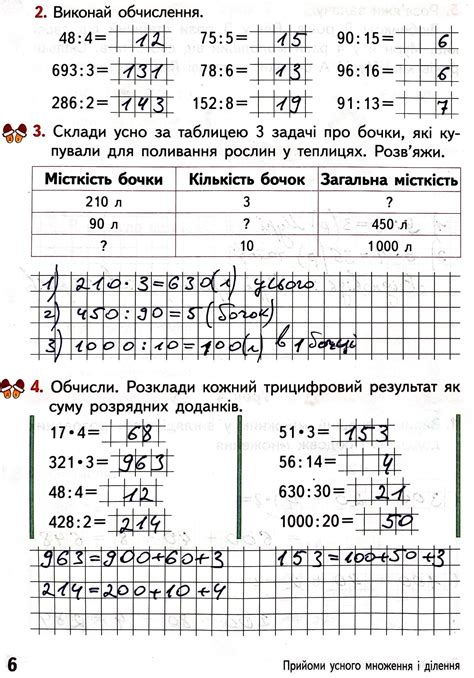 2. Виконай обчислення.
48 : 4 = 12 75 : 5 = 15 90 : 15 = 6
693 : 3 = 131 78 : 6 = 13 96 : 16 = 6
286 : 2 = 143 152 : 8 = 19 91 : 13 = 7
3. Склади усно за таблицею 3 задачі про бочки, які ку-
пували для поливання рослин у теплицях. Розв'яжи.
Місткість бочки Кількість бочок Загальна місткість
210 л 3 ?
90 л ? 450 л
? 10 1000 л
1) 210 · 3 = 630 (л) усього
2) 450 : 90 = 5 (бочок)
3) 1000 : 10 = 100 (л) в 1 бочці
4. Обчисли. Розклади кожний трицифровий результат як
суму розрядних доданків.
17 · 4 = 68 51 · 3 = 153
321 · 3 = 963 56 : 14 = 4
48 : 4 = 12 630 : 30 = 21
428 : 2 = 214 1000 : 20 = 50
963 = 900 + 60 + 3 153 = 100 + 50 + 3
214 = 200 + 10 + 4
6 Прийоми усного множення і ділення